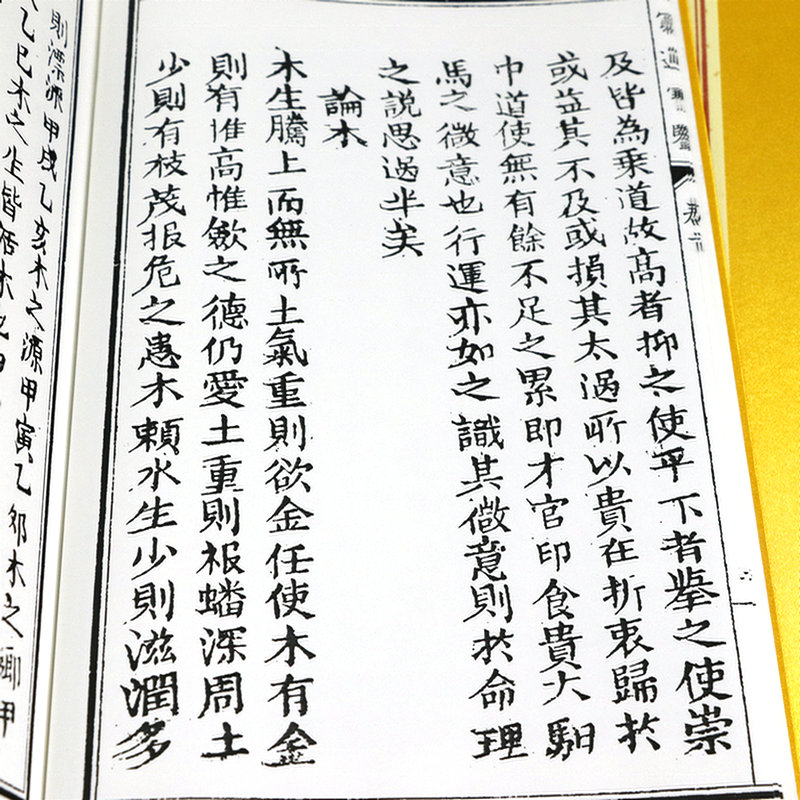 及皆為乗道故高者抑之使平下者舉之使崇
或益其不及或損其太過所以貴在折衷歸於
中道使無有餘不足之累即才官印食貴人馹
馬之微意也行運亦如之識其微意則於命理
之説思過半矣
論木
木生騰上而無所止氣重則欲金任使木有金
則有惟高惟斂之德仍愛土重則根蟠深周土
少則有枝茂根危之患木頼水生少則滋潤多
則漂流甲戌乙亥木之源甲寅乙夘木之郷甲
乙巳木之生皆活木
卷二